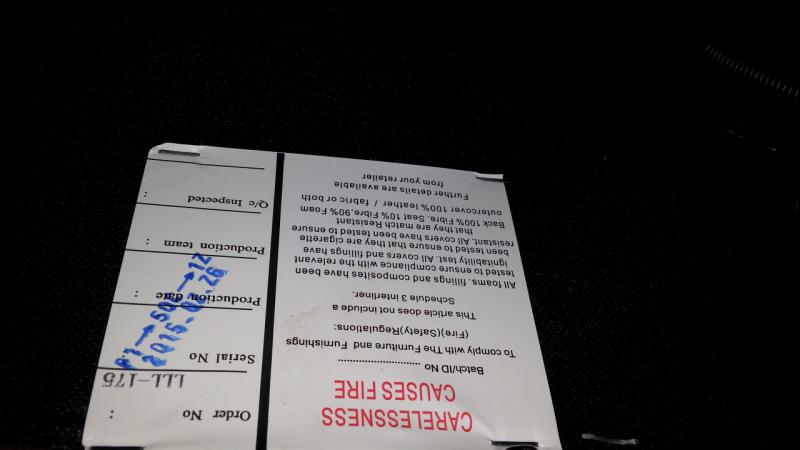 CARELESSNESS
CAUSES FIRE
Batch/ID No ..........................
To comply with The Furniture and Furnishings
(Fire)(Safety)(Regulations:
This article does not include a
Schedule 3 interliner.
All foams, fillings and composites have been
tested to ensure compliance with the relevant
ignitability test. All covers and fillings have
been tested to ensure that they are cigarette
resistant. All covers have been tested to ensure
that they are match Resistant
Back 100% Fibre. Seat 10% Fibre,90% Foam
outercover 100% leather / fabric or both
Further details are available
from your retailer
Order No :
LLL-175
Serial No :
2015.02.26
Production date :
Production team :
Q/c Inspected :